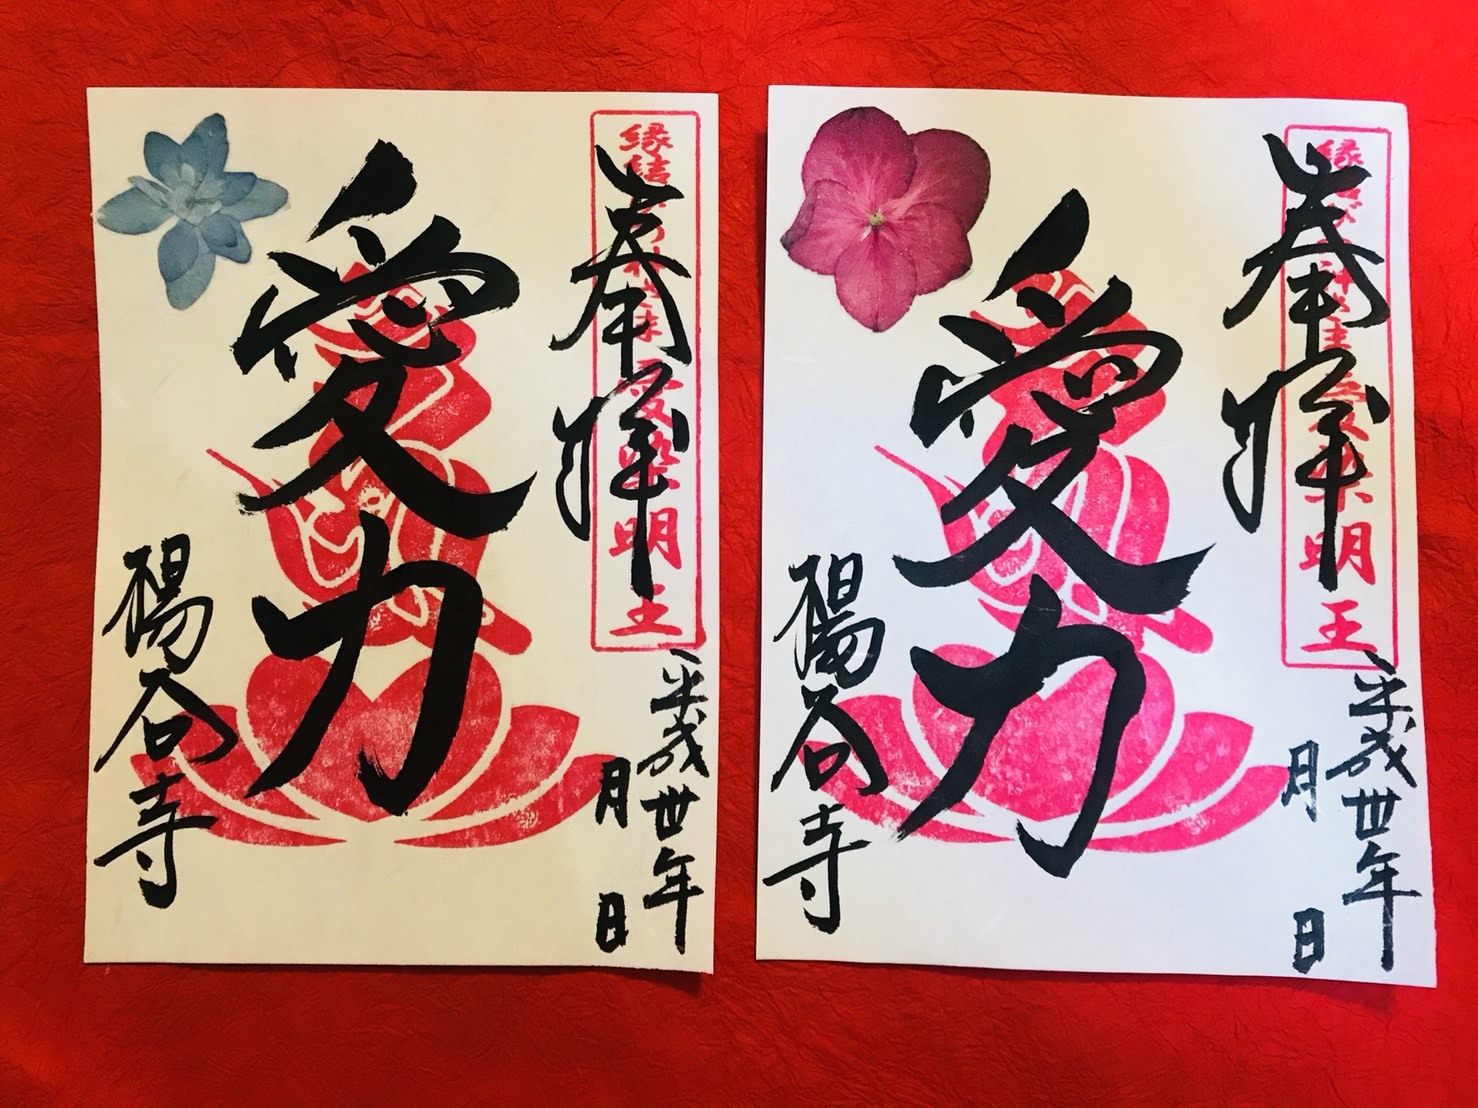 奉拝
縁結
愛染明王
平成丗年
月 日
愛力
楊谷寺
奉拝
縁結
愛染明王
平成丗年
月 日
愛力
楊谷寺